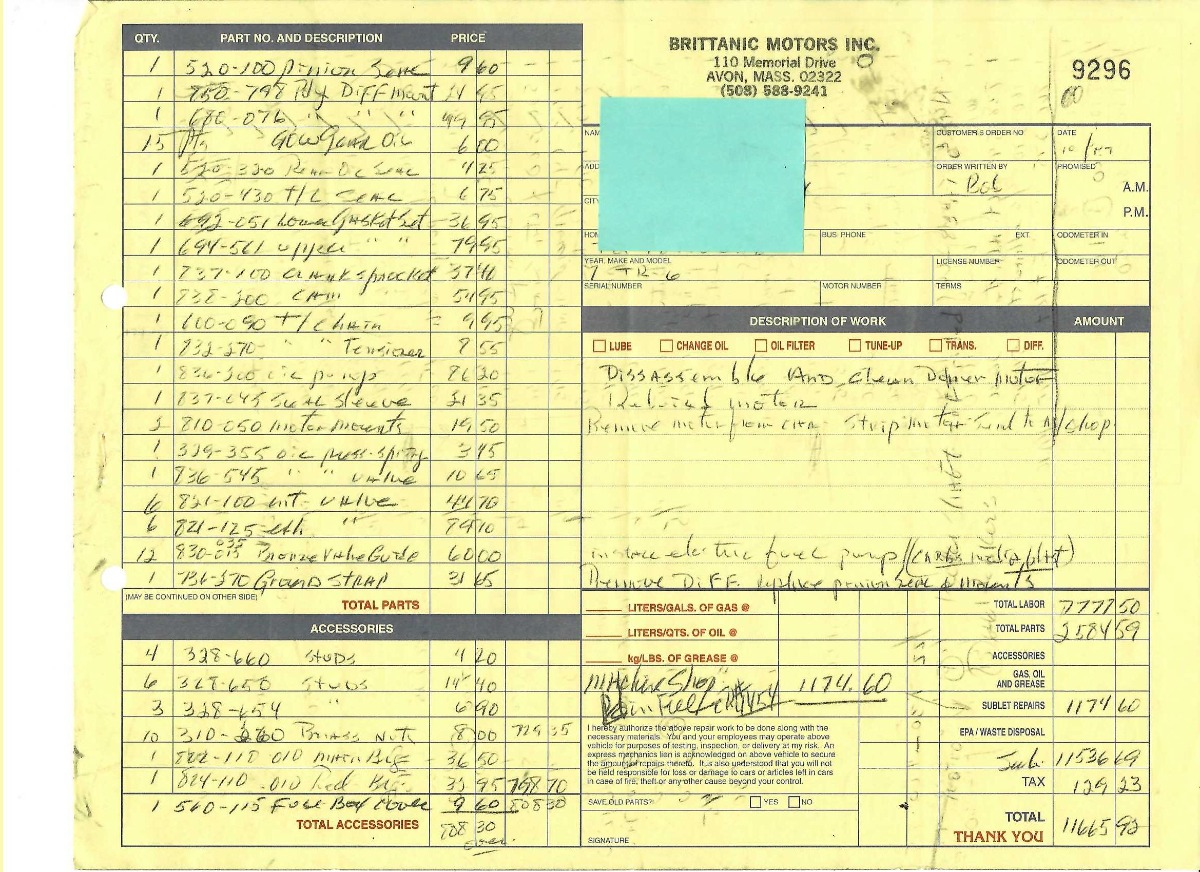 QTY. PART NO. AND DESCRIPTION PRICE
1 520-100 pinion Seal 9 60
1 750-798 Diff mount
1 680-076 " " "
15 Pts Gear Oil 6 00
1 520-320 Rear Oil Seal 4 25
1 520-430 T/C Seal 6 75
1 692-051 Lower Gasket Set 36 95
1 694-561 upper " " 79 95
1 737-100 crank sprocket
1 CAM 54 95
1 600-090 T/Chain 9 95
1 832-270 " " Tensioner 8 55
1 836-200 oil pump 86 20
1 837-045 Seal Sleeve 21 35
2 810-050 motor mounts 19 50
1 329-355 oil press-spring 3 45
1 736-545 " " valve 10 65
6 821-100 int valve 44 70
6 821-125 exh " 79 10
12 830-015 035 Bronze Valve Guide 60 00
1 736-270 Ground STRAP 31 65
(MAY BE CONTINUED ON OTHER SIDE)
TOTAL PARTS
ACCESSORIES
4 328-660 Studs 4 20
6 328-650 Studs 14 40
3 328-654 " 6 90
10 310-260 Brass Nuts 8 00 729 35
1 802-110 010 Main Brg 36 50
1 824-110 .010 Rod Brg 32 95 798 70
1 560-115 Fuse Box Cover 9 60 808 30
TOTAL ACCESSORIES 808 30
over
BRITTANIC MOTORS INC.
110 Memorial Drive
AVON, MASS. 02322
(508) 588-9241
9296
NAM
CUSTOMER'S ORDER NO.
DATE
10/
ADD
ORDER WRITTEN BY
Rob
PROMISED
A.M.
P.M.
CITY
HOM
BUS. PHONE
EXT.
ODOMETER IN
YEAR, MAKE AND MODEL
TR-6
LICENSE NUMBER
ODOMETER OUT
SERIAL NUMBER
MOTOR NUMBER
TERMS
DESCRIPTION OF WORK AMOUNT
LUBE CHANGE OIL OIL FILTER TUNE-UP TRANS. DIFF.
Dissassemble And Clean Down motor
Rebuild motor
Remove motor from car Strip motor Send to M/shop
install electric fuel pump
Remove Diff. replace pinion Seal & mounts
LITERS/GALS. OF GAS @
LITERS/QTS. OF OIL @
kg/LBS. OF GREASE @
Machine Shop 1174.60
TOTAL LABOR 7777 50
TOTAL PARTS 2584 59
ACCESSORIES
GAS, OIL AND GREASE
SUBLET REPAIRS 1174 60
EPA / WASTE DISPOSAL
Sub. 11536 69
TAX 129 23
TOTAL 11665 92
THANK YOU
I hereby authorize the above repair work to be done along with the
necessary materials. You and your employees may operate above
vehicle for purposes of testing, inspection, or delivery at my risk. An
express mechanics lien is acknowledged on above vehicle to secure
the amount of repairs thereto. It is also understood that you will not
be held responsible for loss or damage to cars or articles left in cars
in case of fire, theft or any other cause beyond your control.
SAVE OLD PARTS? YES NO
SIGNATURE